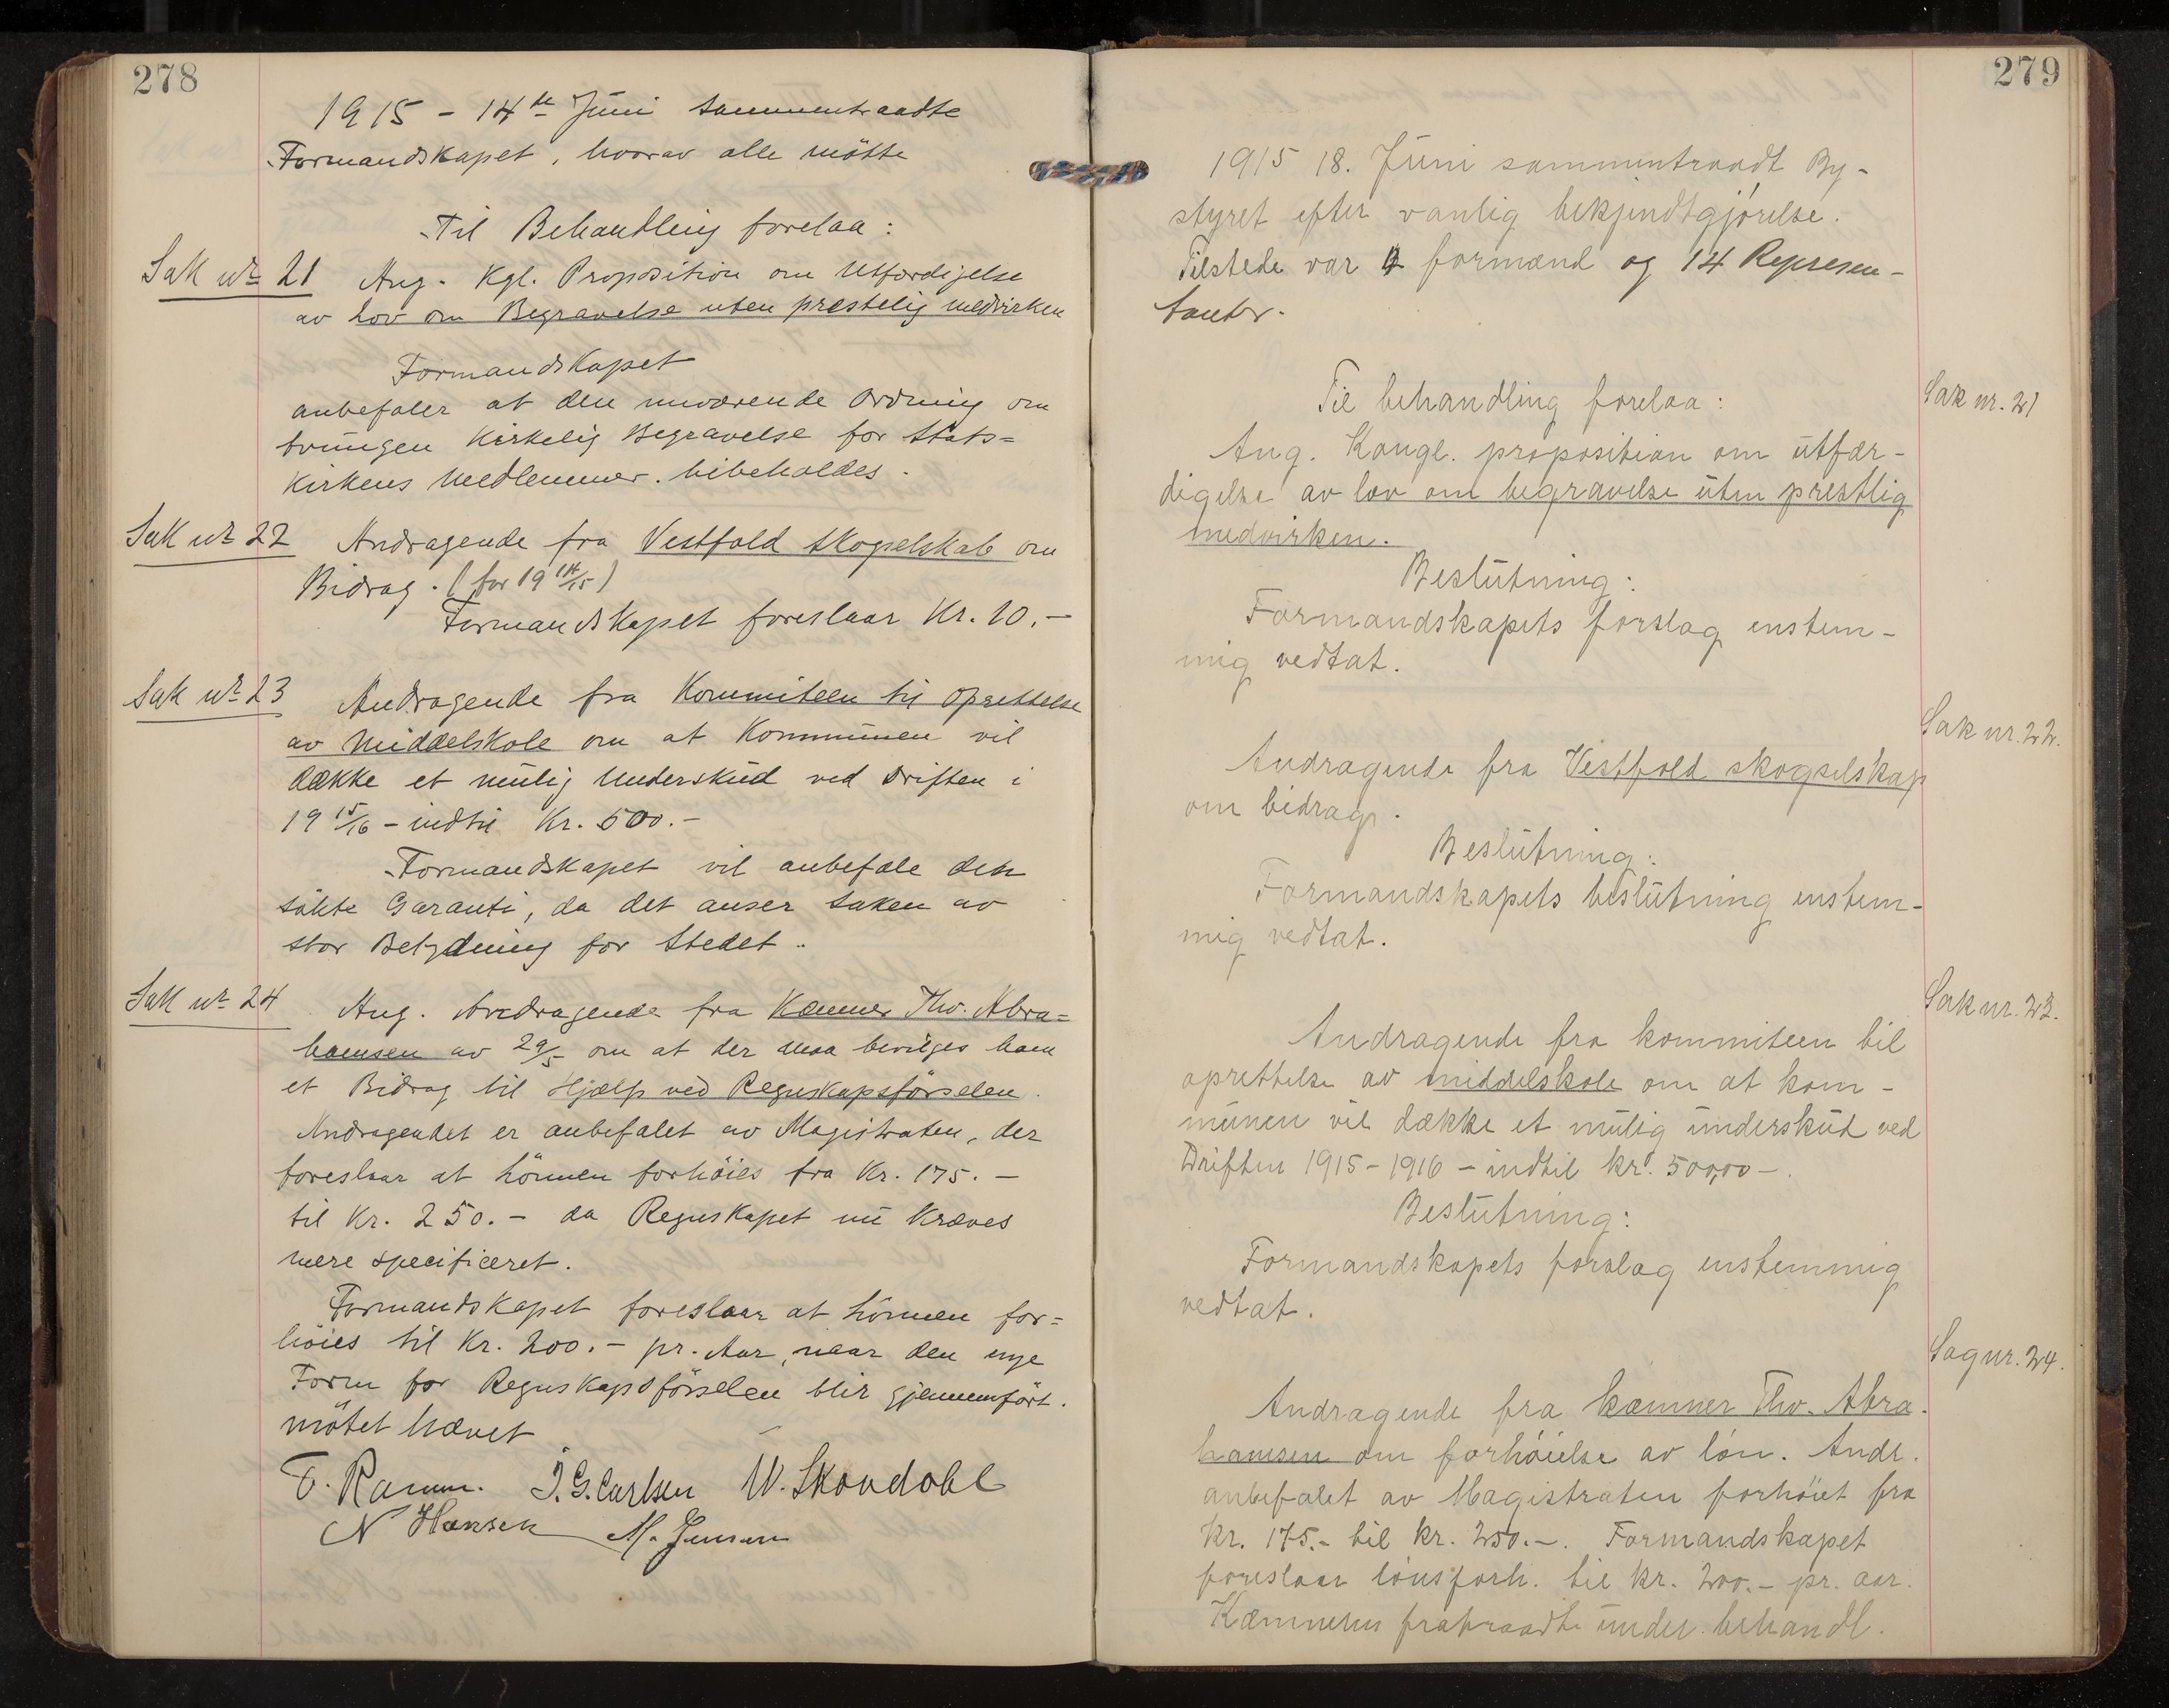 278
1915 - 14de Juni sammentraadte
Formandskapet, hvorav alle mötte
Til Behandling forelaa:
Sak nr 21 Ang. Kgl. Proposition om Utfærdigelse
av Lov om Begravelse uten prestelig medvirken
Formandskapet
anbefaler at den nuværende Ordning om
tvungen Kirkelig Begravelse for Stats=
kirkens Medlemmer bibeholdes.
Sak nr 22 Andragende fra Vestfold Skogselskab om
Bidrag. (for 19 14/15)
Formandskapet foreslaar Kr. 10.-
Sak nr 23 Andragende fra Kommiteen til Oprettelse
av Middelskole om at Kommunen vil
dække et mulig Underskud ved Driften i
19 15/16 - indtil Kr. 500.-
Formandskapet vil anbefale den
sökte Garanti, da det anser Saken av
stor Betydning for Stedet.
Sak nr 24 Ang. Andragende fra Kæmner Thv. Abra=
hamsen av 29/5 om at der maa bevilges ham
et Bidrag til Hjælp ved Regnskapsförselen.
Andragendet er anbefalet av Magistraten, der
foreslaar at Lönnen forhöies fra Kr. 175.-
til Kr. 250.- da Regnskapet nu kræves
mere specificeret.
Formandskapet foreslaar at Lönnen for=
höies til Kr. 200.- pr. Aar, naar den nye
Form for Regnskapsförselen blir gjennemfört.
Mötet hævet
F. Ramm. J. G. Carlsen W. Skovdahl
N Hansen M. Jensen
279
1915 18. Juni sammentraadt By-
styret efter vanlig bekjendtgjörelse.
Tilstede var formænd og 14 Represen-
tanter.
Til behandling forelaa:
Sak nr. 21
Ang. Kongl. proposition om utfær-
digelse av lov om begravelse uten prestlig
medvirken.
Beslutning:
Formandskapets forslag enstem-
mig vedtat.
Sak nr. 22.
Andragende fra Vestfold skogselskap
om bidrag.
Beslutning:
Formandskapets beslutning enstem-
mig vedtat.
Sak nr. 23.
Andragende fra kommiteen til
oprettelse av middelskole om at kom-
munen vil dække et mulig underskud ved
Driften 1915-1916 - indtil kr. 500,00-.
Beslutning:
Formandskapets forslag enstemmig
vedtat.
Sag nr. 24.
Andragende fra kæmner Thv. Abra-
hamsen om forhöielse av lön. Andr.
anbefalet av Magistraten forhöiet fra
Kr. 175.- til kr. 250.-. Formandskapet
foreslaar lönsforh. til kr. 200.- pr. aar.
Kæmneren fratraadte under behandl.